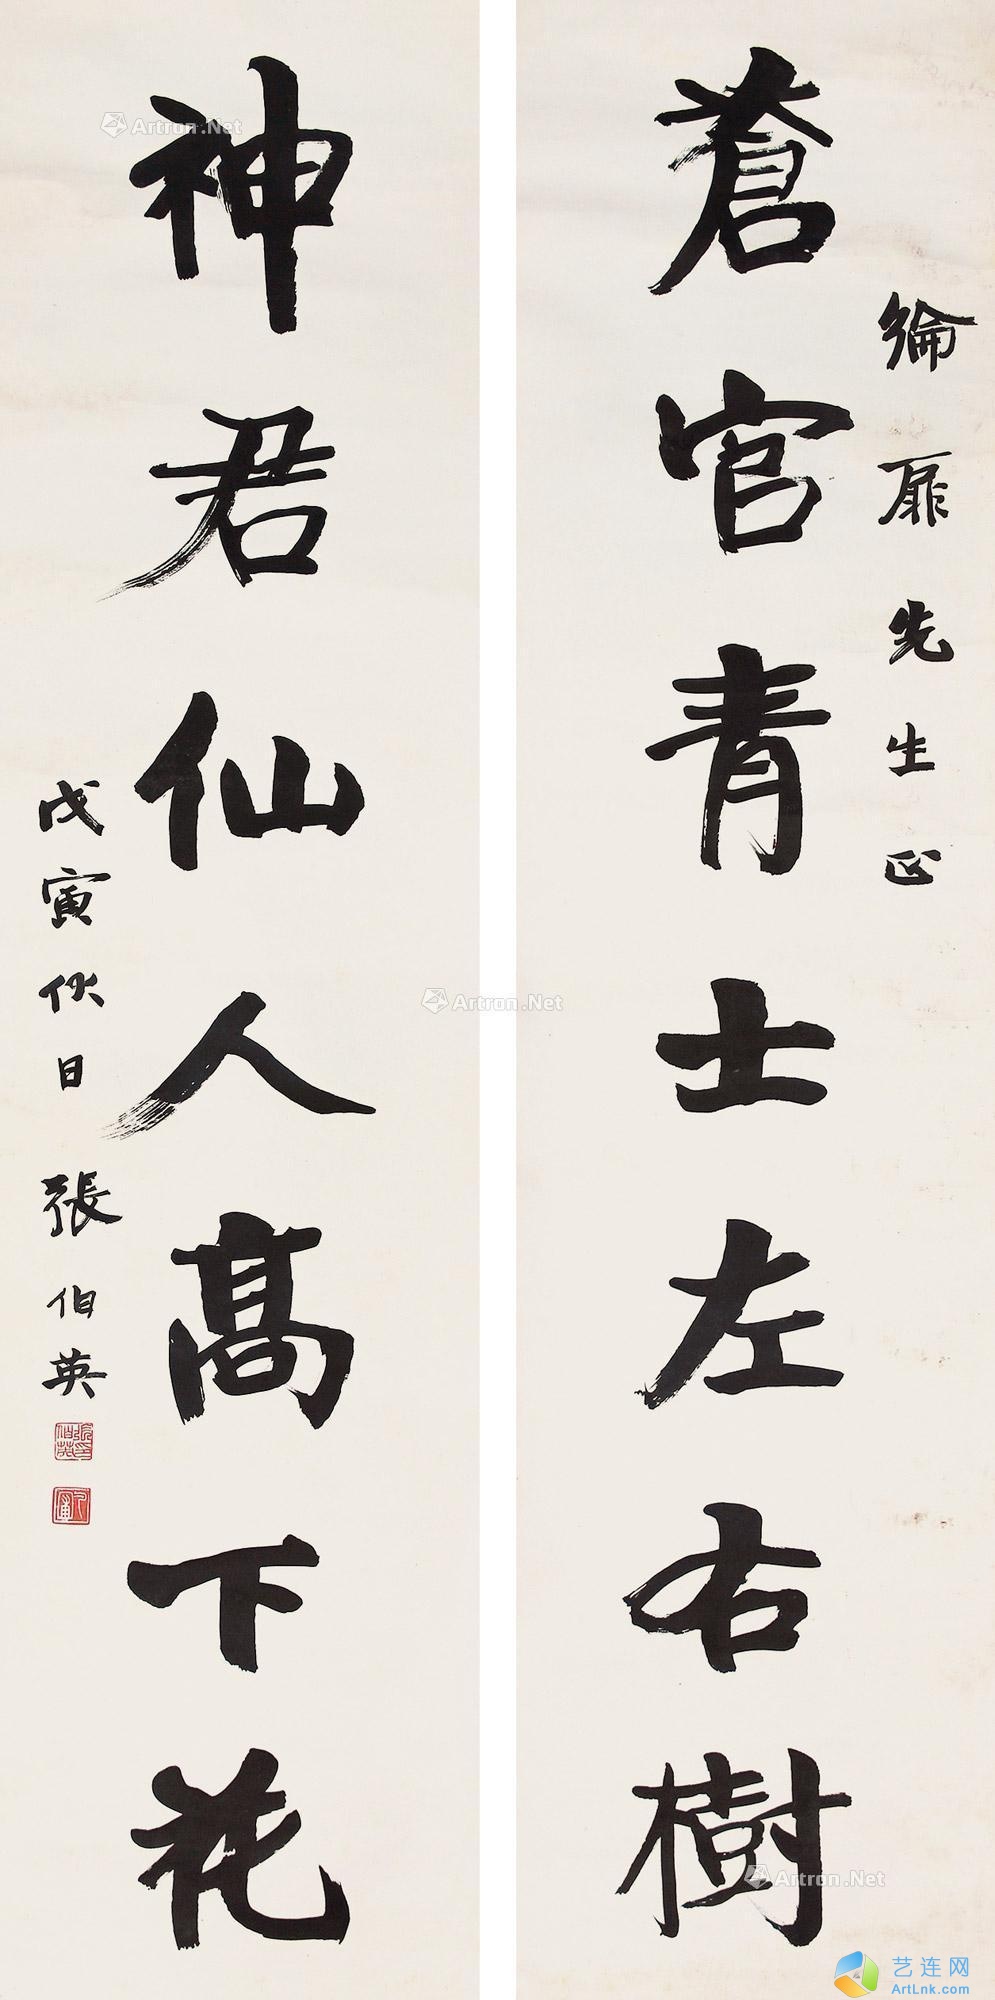 綸扉先生正
蒼官青士左右樹
神君仙人高下花
戊寅伏日張伯英
張伯英印
Artron.Net
Artron.Net
Artron.Net
艺连网
ArtLnk.com